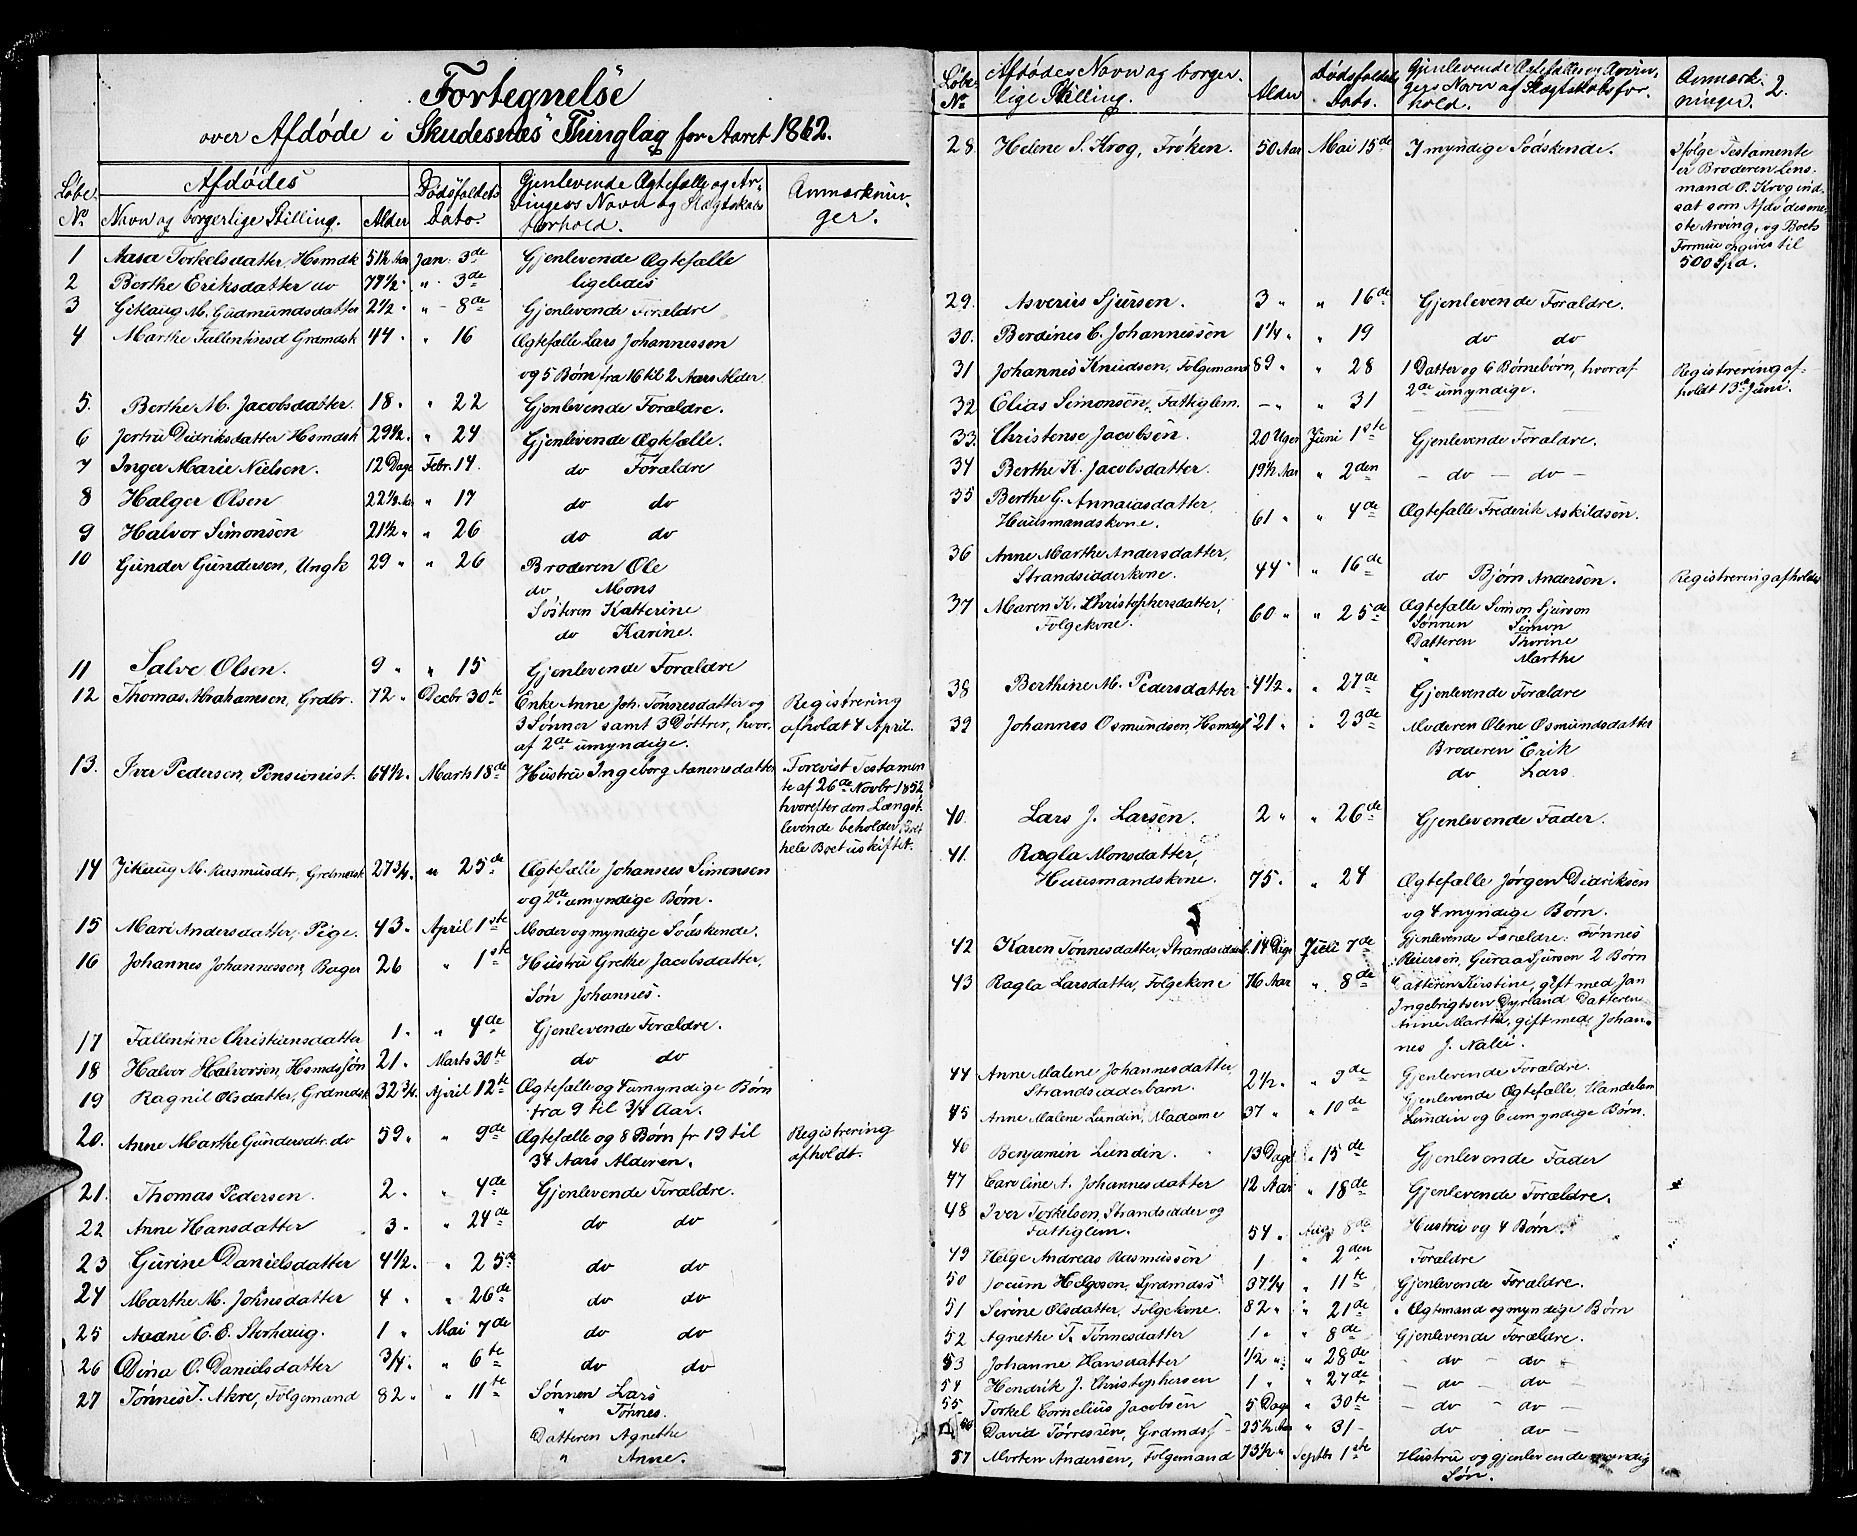 Fortegnelse
over Afdøde i Skudesnæs Thinglag for Aaret 1862.
Løbe No. | Afdødes Navn og borgerlige Stilling. | Alder | Dødsfaldets Dato. | Gjenlevende Ægtefælle og Arvingers Navn og Slægtskabsforhold. | Anmærkninger.
1 Aasa Torkelsdatter, Hsmdk 51½ Aar Jan. 3de Gjenlevende Ægtefælle
2 Berthe Eriksdatter do 77½ " " 3de ligeledes
3 Gitlaug M. Gudmundsdatter 2½ " " 8de Gjenlevende Forældre
4 Marthe Fallentinsd Grdmdsk 44 " " 16 Ægtefælle Lars Johannessen
og 5 Børn fra 16 til 2 Aars Alder.
5. Berthe M. Jacobsdatter. 18 " " 22 Gjenlevende Forældre.
6 Jertru Didriksdatter Hsmdsk 29½ " " 24 Gjenlevende Ægtefælle.
7 Inger Marie Nielsen. 12 Dage Febr. 14. do Forældre
8 Halger Olsen 22½ Aar " 17 do do
9 Halvor Simonsen 21½ " " 26 do do
10 Gunder Gundersen, Ungk 29 " " 26 Broderen Ole
do Mons
Søsteren Katterine
do Karine.
11 Salve Olsen. 9 " " 15 Gjenlevende Forældre
12 Thomas Abrahamsen, Grdbr. 72 " Decbr 30te Enke Anne Joh. Tønnesdatter og Registrering
3 Sønner samt 3 Døttre, hvor- afholdt 4 April.
af 2de umyndige.
13. Iver Pedersen, Pensionist. 64½ " Marts 18de Hustru Ingeborg Aanensdatter Forevist Testamen-
te af 26de Novbr 1852
hvorefter den Længst-
levende beholder Boet
hele Boet uskiftet.
14 M. Rasmusdtr, Grdmdsk 27¾ " " 25de Ægtefælle Johannes Simonsen
og 2de umyndige Børn.
15 Mari Andersdatter, Pige. 43 " April 1ste Moder og myndige Sødskende.
16 Johannes Johannessen, Bager 26 " 1ste Hustru Grethe Jacobsdatter,
Søn Johannes.
17 Fallentine Christiensdatter 1 " " 4de Gjenlevende Forældre.
18 Halvor Halvorsen, Hsmdssøn 21 " Marts 30te do do
19 Ragnil Olsdatter, Grdmdsk 32¾ " April 12te Ægtefælle og 4 umyndige Børn
fra 9 til ¾ Aar.
20. Anne Marthe Gundersdtr. do 59 " " 9de Ægtefælle og 8 Børn fr 19 til Registrering
34 Aars Alderen. afholdt.
21. Thomas Pedersen. 2 " " 4de Gjenlevende Forældre.
22 Anne Hansdatter 3 " " 24de do do
23 Gurine Danielsdatter 4½ " " 25de do do
24 Marthe M. Johnsdatter 4 " " 26de do do
25 Aadne E. E. Storhaug. 1 " Mai 7de do do
26 Dina O. Danielsdatter ¾ " " 6te do do
27 Tønnes T. Akre, Folgemand 82 " " 11te Sønnen Lars
" Tønnes.
Datteren Agnethe
" Anne.
Løbe No | Afdødes Navn og borgerlige Stilling. | Alder | Dødsfaldets Dato. | Gjenlevende Ægtefælles og Arvingers Navn og Slægtskabsforhold. | Anmærkninger. 2.
28 Helene S. Krog, Frøken. 50 Aar Mai 15de 7 myndige Sødskende. Ifølge Testamente
er Broderen Lens-
mand O. Krog ind-
sat som Afdødes ene-
ste Arving, og Boets
Formue opgives til
500 Spd.
29. Asverius Sjursen. 3 " " 16de Gjenlevende Forældre.
30. Berdines C. Johannessen 1¼ " " 19 do do
31 Johannes Knudsen, Folgemand 89 " " 28 1 Datter og 6 Børnebørn, hvoraf Registrering af-
2de umyndige. holdt 13de Juni.
32 Elias Simonsen, Fattiglem. – " " 31
33. Christense Jacobsen. 20 Uger Juni 1ste Gjenlevende Forældre.
34 Berthe K. Jacobsdatter. 19½ Aar " 2den – do – do –
35 Berthe G. Annaiasdatter
Huusmandskone. 61 " " 4de Ægtefælle Frederik Askildsøn.
36 Anne Marthe Andersdatter,
Strandsidderkone. 44 " " 16de do Bjørn Andersen. Registrering afholdt
37 Maren K. Christophersdatter, Ægtefælle Simon Sjursen
Folgekone. 60 " " 25de Sønnen Simon
Datteren Thorine
" Marthe
38 Berthine M. Pedersdatter 4½ " " 27de Gjenlevende Forældre
39 Johannes Osmundsen, Hsmdsf 21 " " 23de Moderen Olene Osmundsdatter
Broderen Erik
do Lars.
40. Lars J. Larsen. 2 " " 26de Gjenlevende Fader.
41. Ragla Monsdatter,
Huusmandskone. 75. " 24 Ægtefælle Jørgen Didriksen
og 4 myndige Børn.
42 Karen Tønnesdatter, Strandsidderb. 14 Dage Juli 7de Gjenlevende Forældre: Tønnes
Reiersen, Guraa Sjursen 2 Børn
43 Ragla Larsdatter, Folgekone 76 Aar " 8de Datteren Kirstine, gift med Jan
Ingebrigtsen Dyrland Datteren
Anne Marthe, gift med Johan-
nes J.
44 Anne Malene Johannesdatter
Strandsidderbarn. 2½ " " 9de Gjenlevende Forældre.
45 Anne Malene Lundin, Madame 37 " " 10de Gjenlevende Ægtefælle, Handelsm
Lundin og 6 umyndige Børn.
46 Benjamin Lundin. 13 Dage " 15de Gjenlevende Fader
47 Caroline A. Johannesdatter 12 Aar " 18de Gjenlevende Forældre.
48 Iver Torkelsen, Strandsidder og
Fattiglem. 54 " Aug. 8de Hustru og 4 Børn.
49 Helge Andreas Rasmussen 1 " 2den Forældre
50 Jocum Helgesen, Grdmdss 37¼ " 11te Gjenlevende Forældre.
51 Serine Olsdatter, Folgekone. 82 " " 21de " Ægtemand og myndige Børn
52 Agnethe T. Tønnesdatter 1 " " 8de Gjenlevende Forældre.
53 Johanne Hansdatter ½ " " 28de – do – do –
54 Hendrik J. Christophersen 1 " " 27de – do – do –
55 Torkel Cornelius Jacobsen 5 Dage " 30te – do – do –
56 David Tørressen, Grdmdsf – 25½ Aar " 31 – do do –
57 Morten Andersen, Folgemand 73½ " Septbr 1ste Hustru og gjenlevende myndig
Søn.